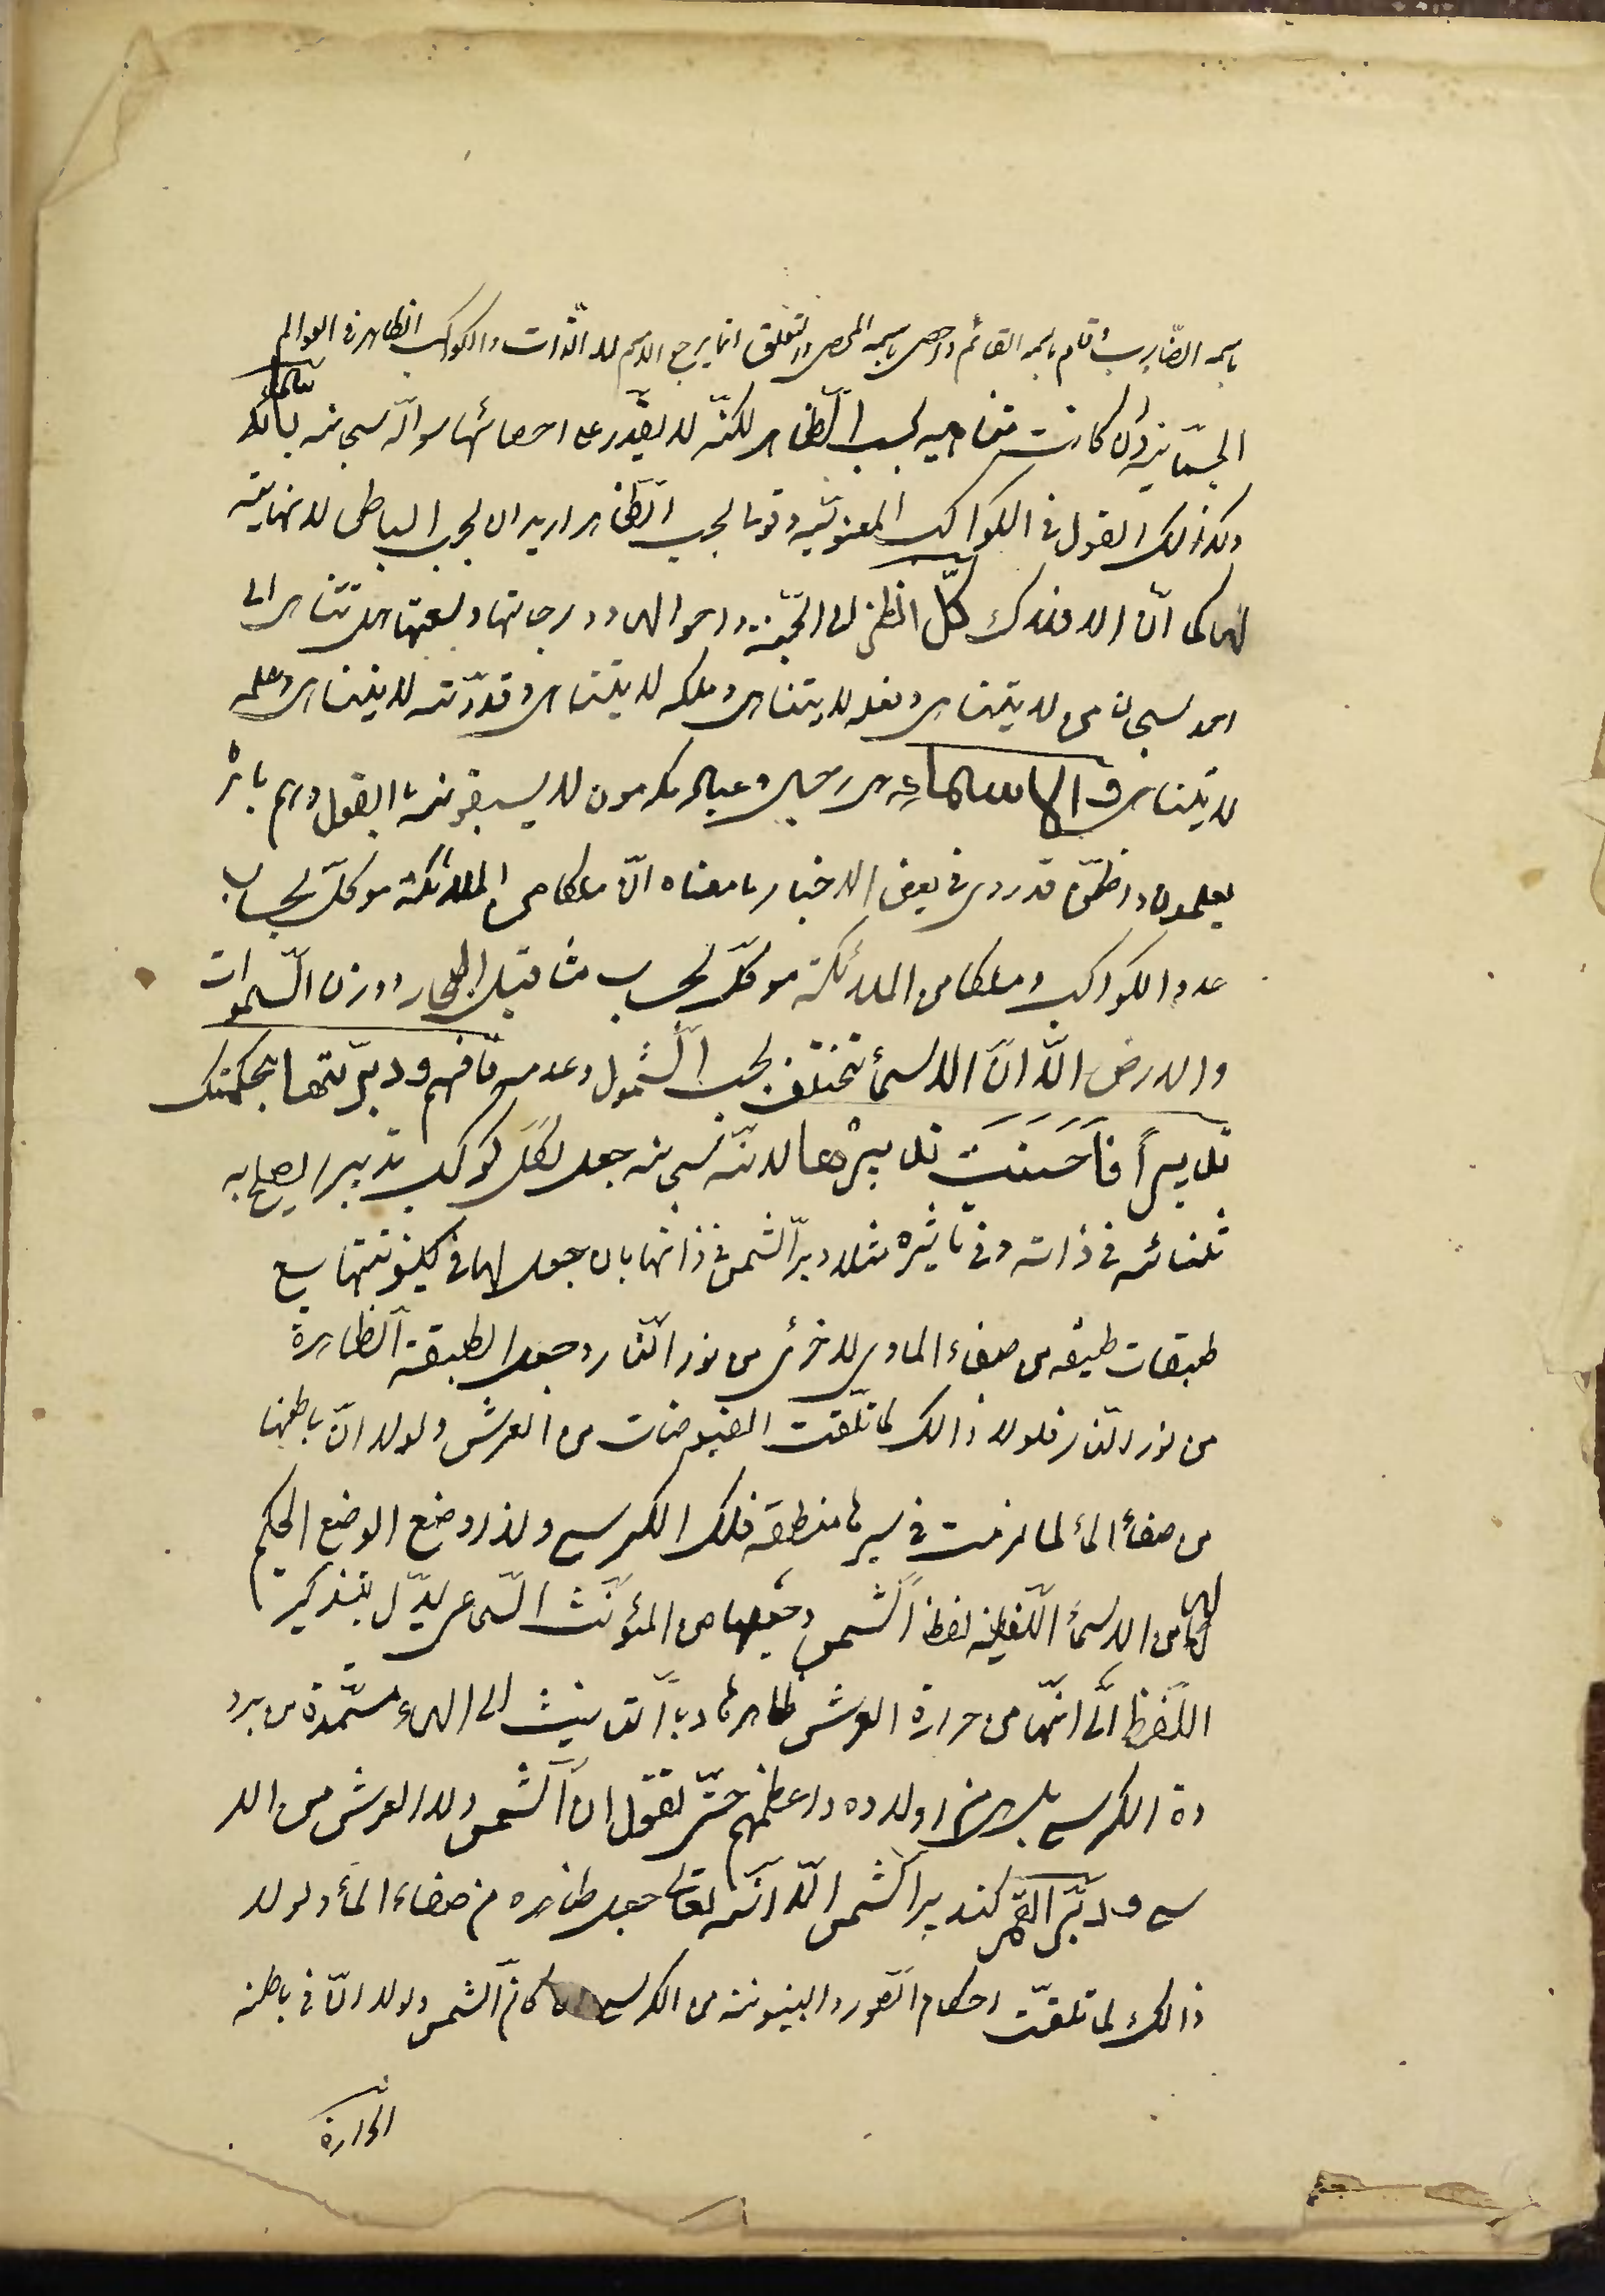 باسمه الضارب قام باسمه القائم واحصی باسمه المحصی والتعلق انما یرجع الی الاسم لا الذات والکواکب الظاهرة فی العوالم
الجسمانیة وان کانت متناهیه بحسب الظاهر لکنّه لا یقدر علی احصائها سواه سبحانه
وکذالک القول فی الکواکب المعنویّه وقولنا بحسب الظاهر ارید ان بحسب الباطن لا نهایته
لها کما انّ الافلاک کلّ انظر الی الجنّة واحوالها ودرجاتها وسعتها هل تتناهی الی
امد سبحان من لا یتناهی وفعله لا یتناهی وملکه لا یتناهی وقدرته لا یتناهی وعلمه
لا یتناهی و الاسماء هی رجال وعباد مکرمون لا یسبقونه بالقول وهم بامره
یعملون واظنّ قد روی فی بعض الاخبار ما معناه انّ ملکا من الملائکة موکّل بحساب
عدد الکواکب وملکا من الملائکة موکّل بحساب مثاقیل البحار ووزن السّموات
والارض الّا انّ الاسمأ تختلف بحسب الشّمول وعدمه فافهم ودبّرتها بحکمتک
تدبیرأ فأحسنت تدبیرها لانّه سبحانه جعل لکلّ کوکب تدبیرا یصلح به
فی ذاته وفی تاثیره مثلا دبّر الشمس فی ذاتها بان جعل لها فی کینونتها سبع
طبقات طبقه من صفاء الماء والاخری من نور النّار وجعل الطبقة الظاهرة
من نور النّار فلولا ذالک لما تلقّت الفیوضات من العرش ولولا انّ باطنها
من صفاء المأ لما لزمت فی سیرها منطقة فلک الکرسی ولذا وضع الواضع الحکیم
لها من الاسمأ اللّفظیّة لفظ الشّمس وجعلها من المؤنّث السّماعی لیدّل بتذکیر
اللّفظ الی انّها من حرارة العرش ظاهرها وبالتانیث الی انها مستمدة من برو
دة الکرسی بل هی من اولاده واعظمهم حتّی نقول ان الشّمس ولد العرش من الکر
سی ودبّر القمر کتدبیر الشّمس الّا انّه تعالی جعل ظاهره من صفاء المأ ولولا
ذالک لما تلقّت احکام الصّور والبینونة من الکرسی کما کان الشمس ولولا انّ فی باطنه
الحرارة